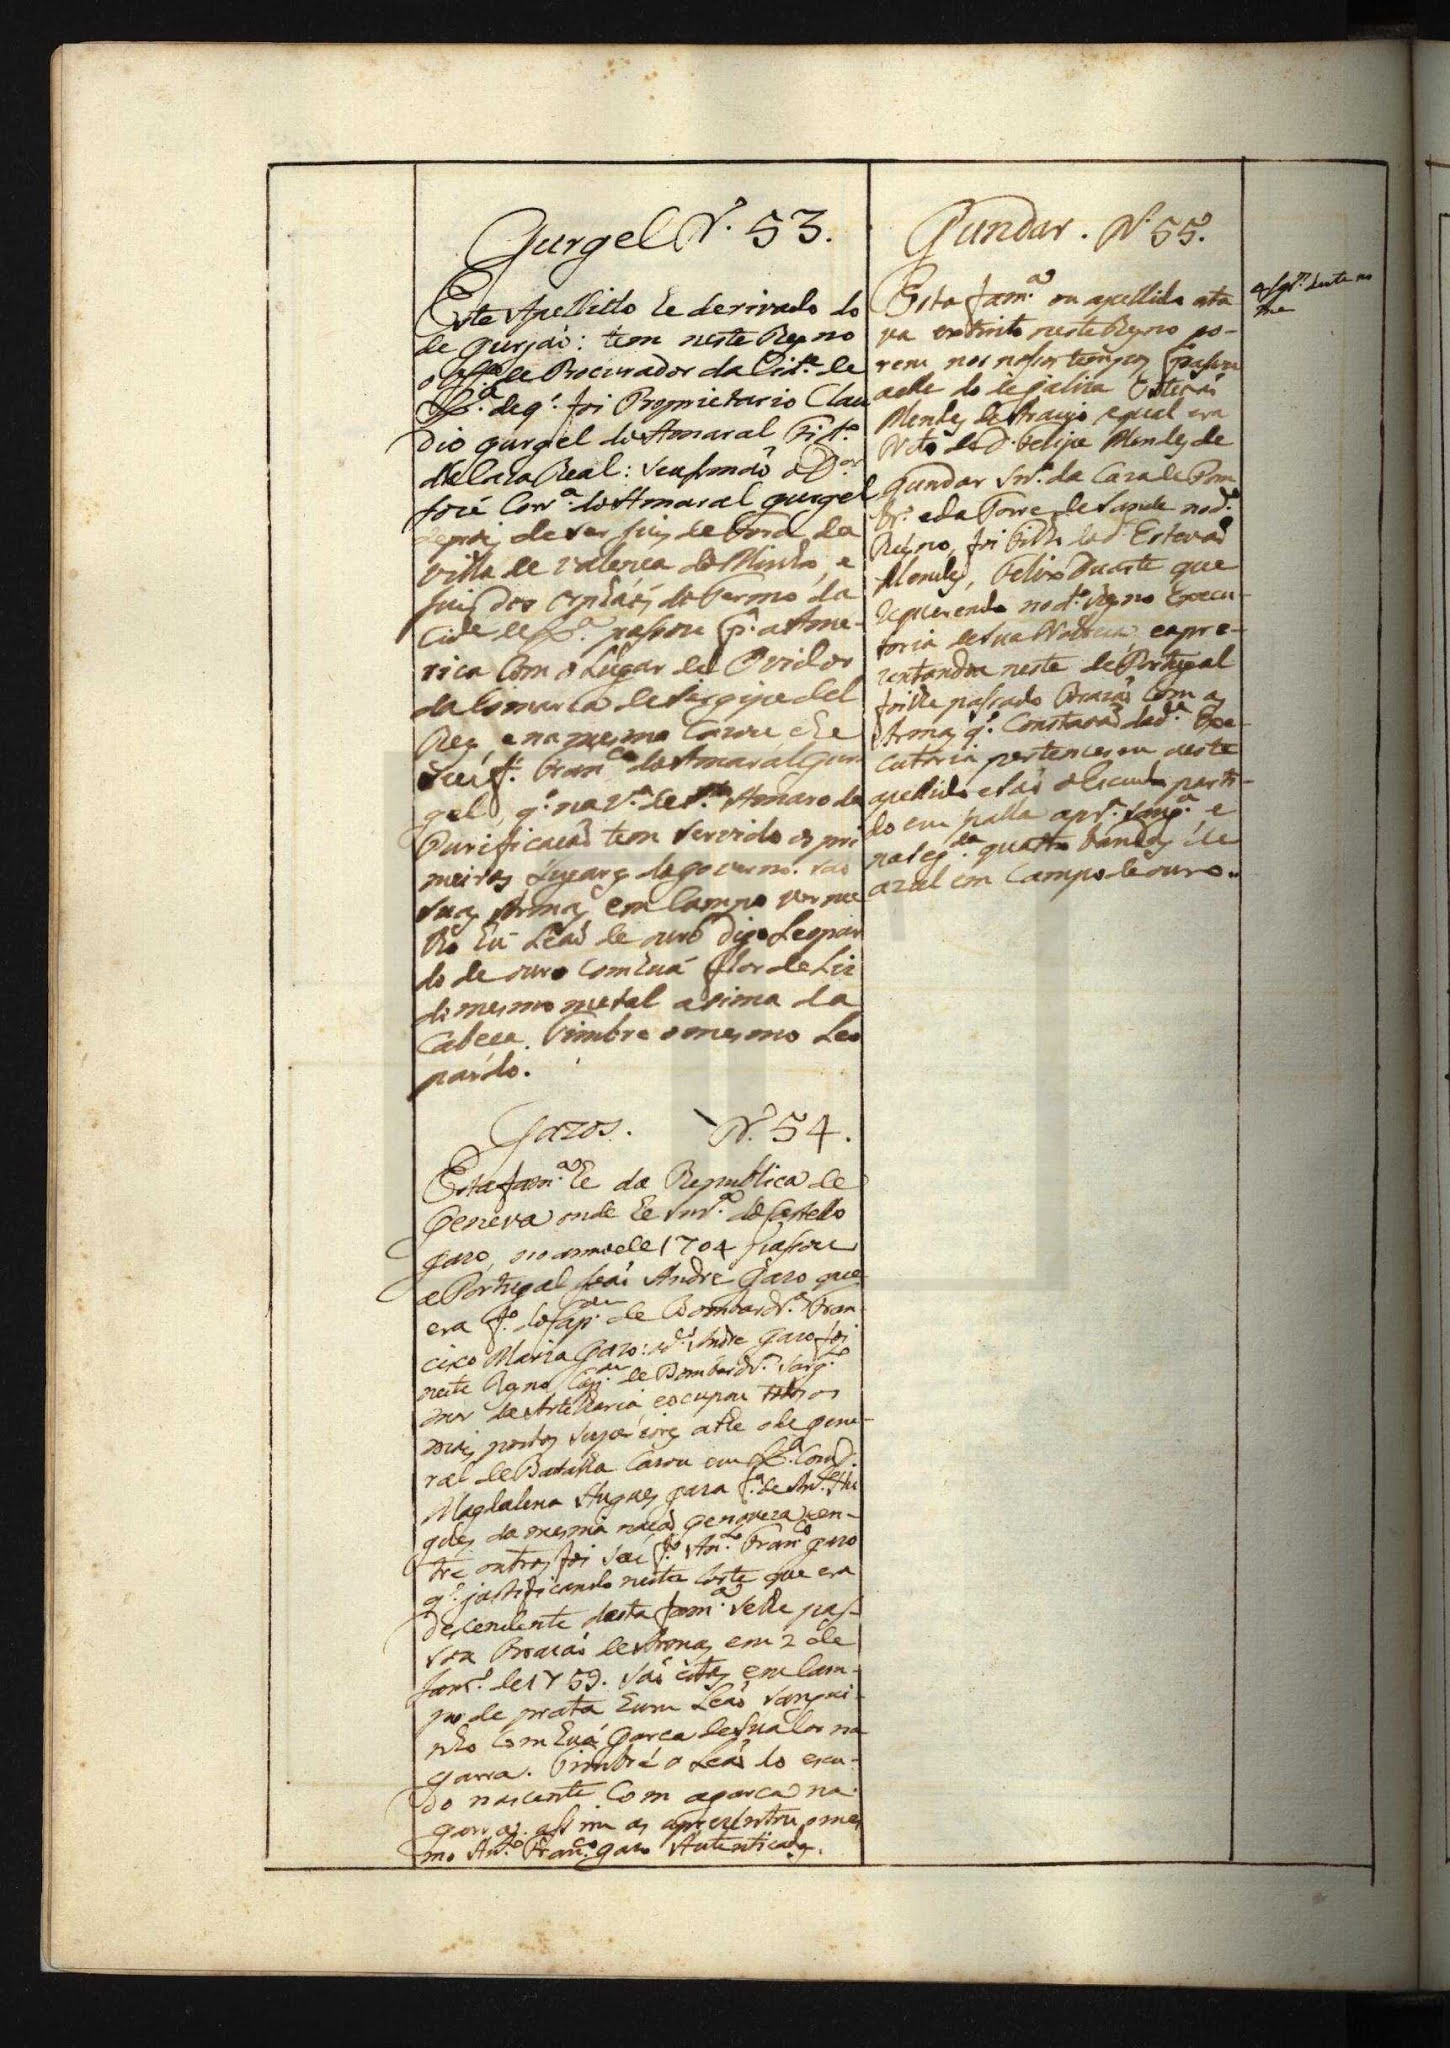 Gurgel N.º 53.
Este Apellido he derivado do
de gurjaõ: tem neste Reyno
o off.º de Procurador da Cid.e de
Lx.ª de q.' foi Proprietario Clau
dio gurgel do Amaral Fid.º
da Caza Real: seu Irmaõ o D.or
José Corr.ª do Amaral gurgel
depois de ser juis de fora da
villa de Valença do Minho, e
juis dos orphaõs do termo da
Cid.e de Lx.ª passou p.ª a Ame-
rica Com o Lugar de Ouvidor
da Comarca de Sirgipe del
Rey, e na mesma Cazou e he
seu f.º Fran.co do Amaral gur
gel, q.' na V.ª de S.to Amaro da
Purificaçaõ tem servido os pri
meiros Lugares do governo. saõ
suas Armas em Campo verme
lho hũ Leaõ de ouro digo Leopar
do de ouro Com huá flor de Liz
do mesmo metal asima da
Cabeça. Timbre o mesmo Leo
pardo.
Gazos. N.º 54.
Esta fam.ª he da Republica de
Genova onde he Snr.ª do Castello
gazo, no anno de 1704 passou
a Portugal Joaõ André Gazo que
era f.º do Cap.am de Bombardr.ª Fran-
cisco Maria Gazo: o d.º André gazo foi
neste Reyno Cap.am de Bombardr.ª Sarg.to
mor da Artelharia e ocupou todos os
mais postos superiores athe o de gene-
ral de Batalha Cazou em Lx.ª Com D.
Magdalena Hugues para f.ª de An.to Hu
gues da mesma naçaõ genoveza e en-
tre outros foi seu f.º An.to Fran.co gazo
q.' justificando nesta Corte que era
descendente desta fam.ª se lhe pas-
sou Brazaõ de Armas em 2 de
Janr.º de 1759. Saõ estas em Cam-
po de prata hum Leaõ sangui-
nho Com huá Garça de sua Cor na
garra. Timbre o Leaõ do escu-
do nascente Com a garça na
garra. assim as aprezentou o mes
mo An.to Fran.co gazo Autenticadas.
Gundar. N.º 55.
Esta fam.ª ou apellido esta
va extinto neste Reyno po-
rem nos nossos tempos passou
a elle do de galiza Estevaõ
Mendes de Araujo o qual era
Neto de D. Felipe Mendes de
Gundar Snr.' da Caza de Pom
br.º e da Torre de Sande no d.º
Reyno, foi filho do d.º Estevaõ
Mendes, Felix Duarte que
requerendo no d.º Reyno Execu-
toria de sua Nobreza e apre-
zentandoa neste de Portugal
foilhe passado Brazaõ Com as
Armas q.' Constavaõ da d.ª Exe-
cutoria pertencerem a este
apellido e saõ o Escudo parti-
do em palla a pr.ª sang.ª e
na seg.da quatro bandas de
azul em Campo de ouro..
deste no
me